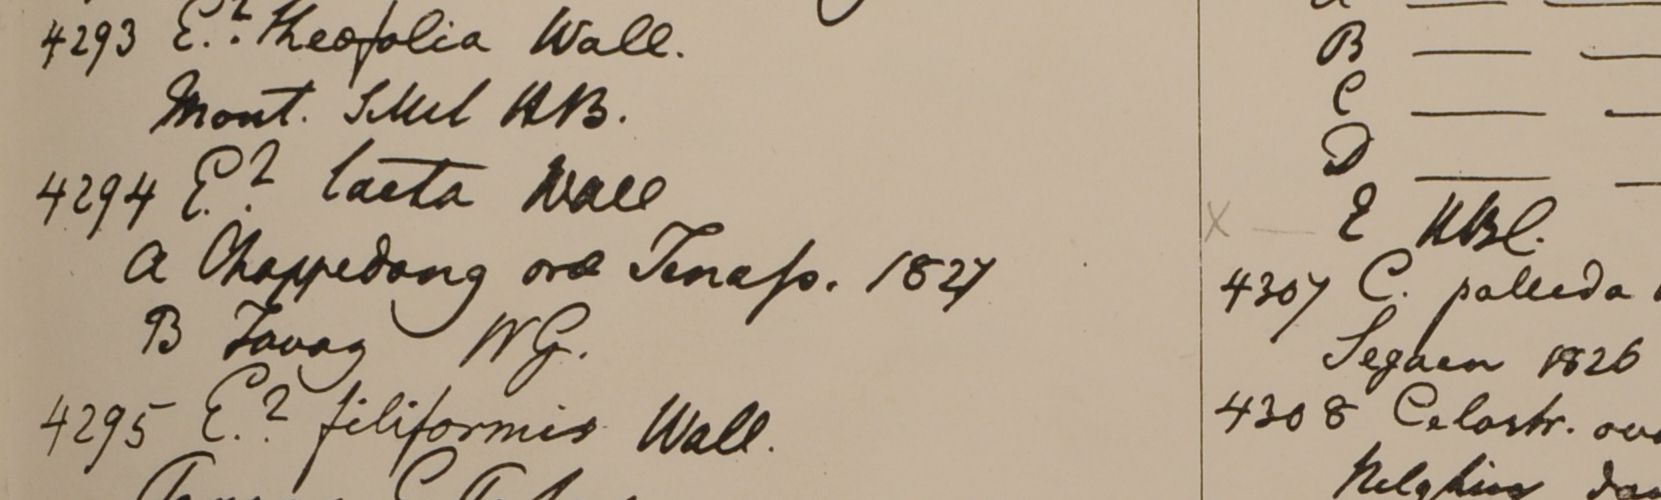 4293 E.? theofolia Wall.
Mont. Sillet HB.
4294 E.? laeta Wall
a Chappedong orae Tenass. 1827
B Tavoy WG.
4295 E.? filiformis Wall.
B
C
D
E HBC.
4307 C. pallida
Segaen 1826
4308 Celastr.